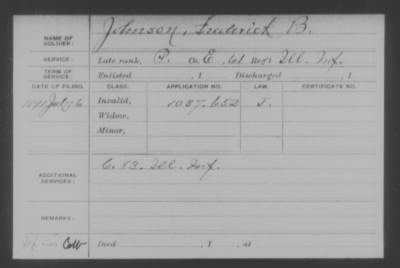 NAME OF SOLDIER: Johnson, Frederick B.
SERVICE: Late rank, P. Co. E, 61 Reg't Ill. Inf.
TERM OF SERVICE: Enlisted , 1 Discharged , 1
DATE OF FILING. CLASS. APPLICATION NO. LAW. CERTIFICATE NO.
July 6 Invalid, 1037.652
Widow,
Minor,
ADDITIONAL SERVICES: C. 83. Ill. Inf.
REMARKS:
Died , 1 , at